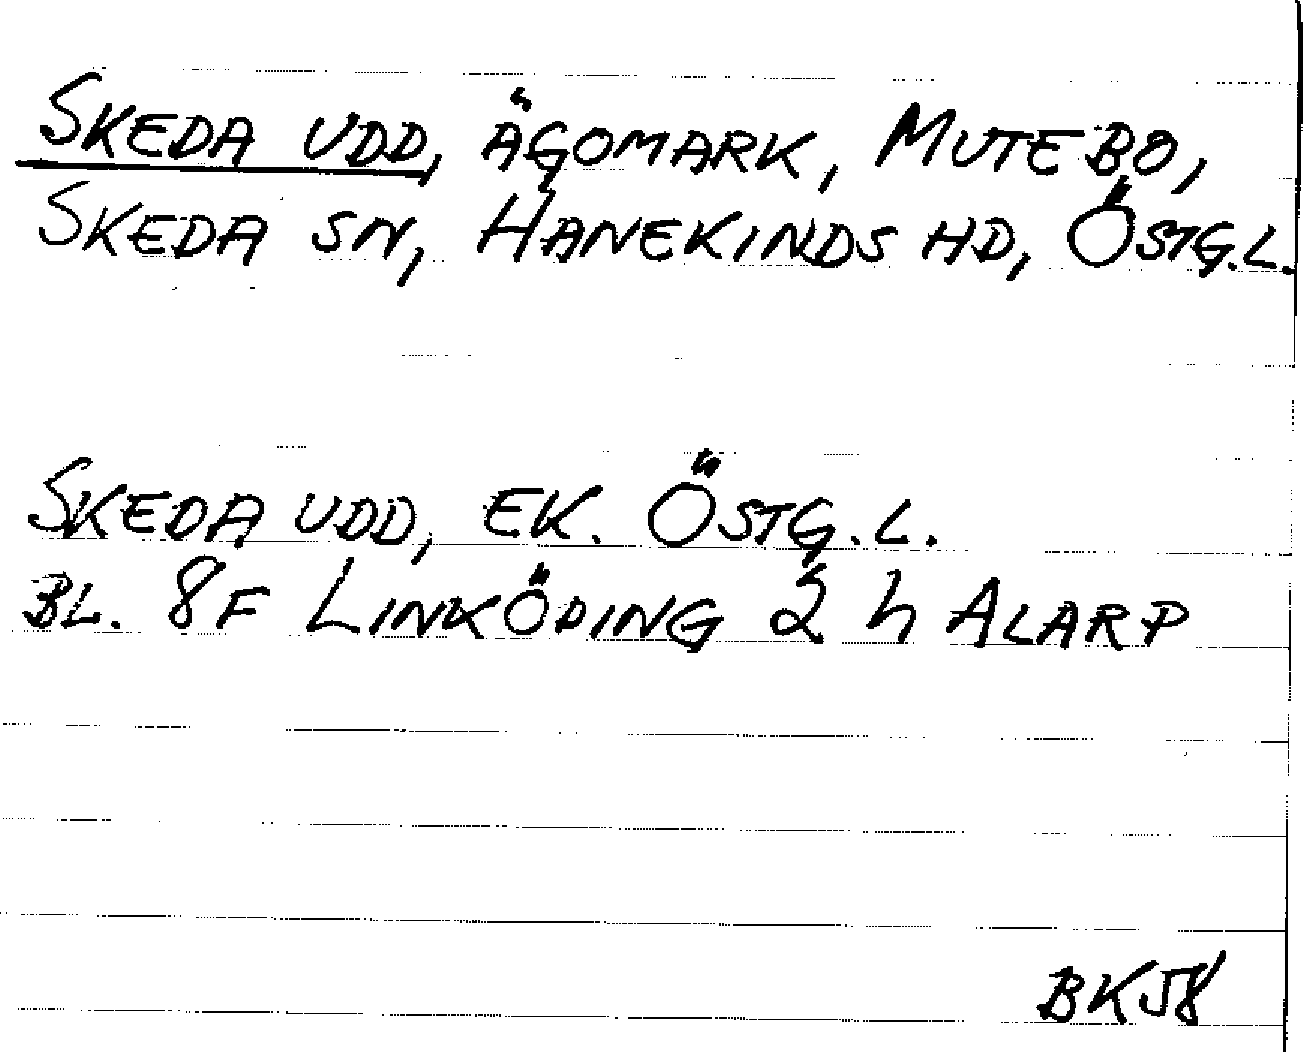 SKEDA UDD, ÄGOMARK, MUTEBO,
SKEDA SN, HANEKINDS HD, ÖSTG.L.
SKEDA UDD, EK. ÖSTG.L.
BL. 8F LINKÖPING 2 h ALARP
BK58